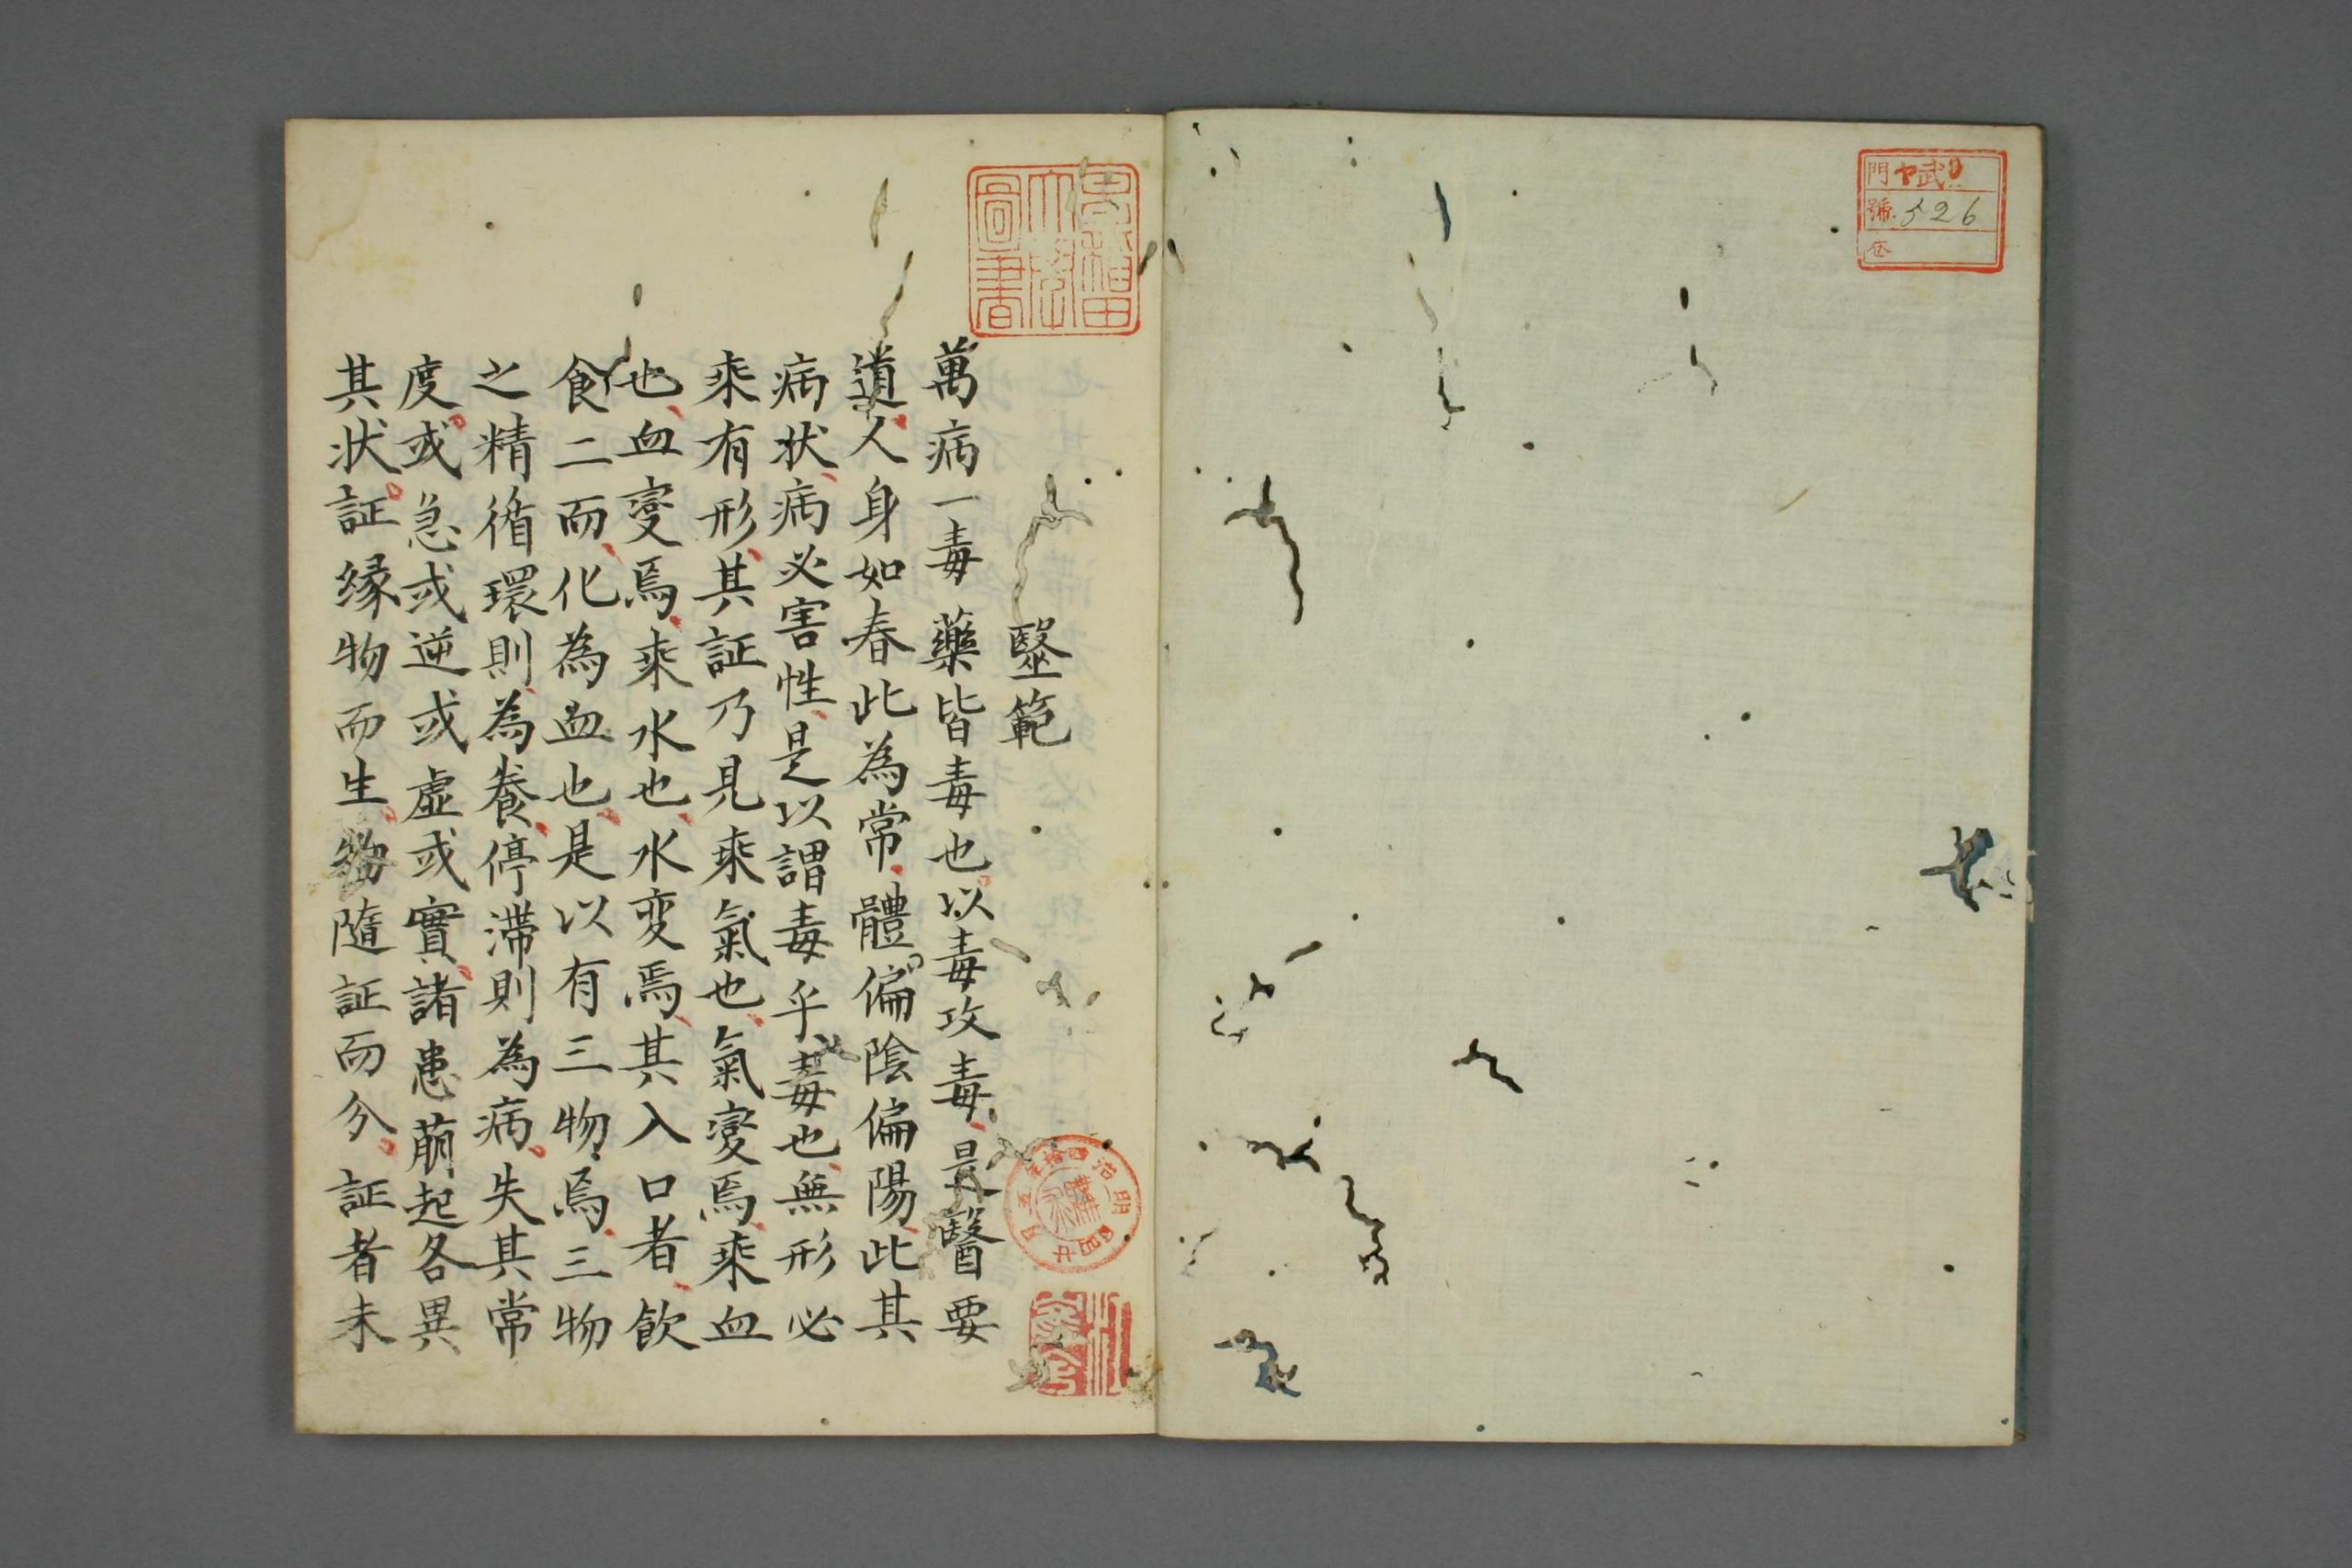 門 ヤ
號 526
巻
早稲田
大學
圖書
毉範
萬病一毒藥皆毒也以毒攻毒是醫要
道人身如春此為常體偏陰偏陽此其
病状病必害性是以謂毒乎毒也無形必
乘有形其証乃見乘氣也氣變焉乘血
也血變焉乘水也水変焉其入口者飲
食二而化為血也是以有三物焉三物
之精循環則為養停滯則為病失其常
度或急或逆或虛或實諸患萠起各異
其状証緣物而生物隨証而分証者未